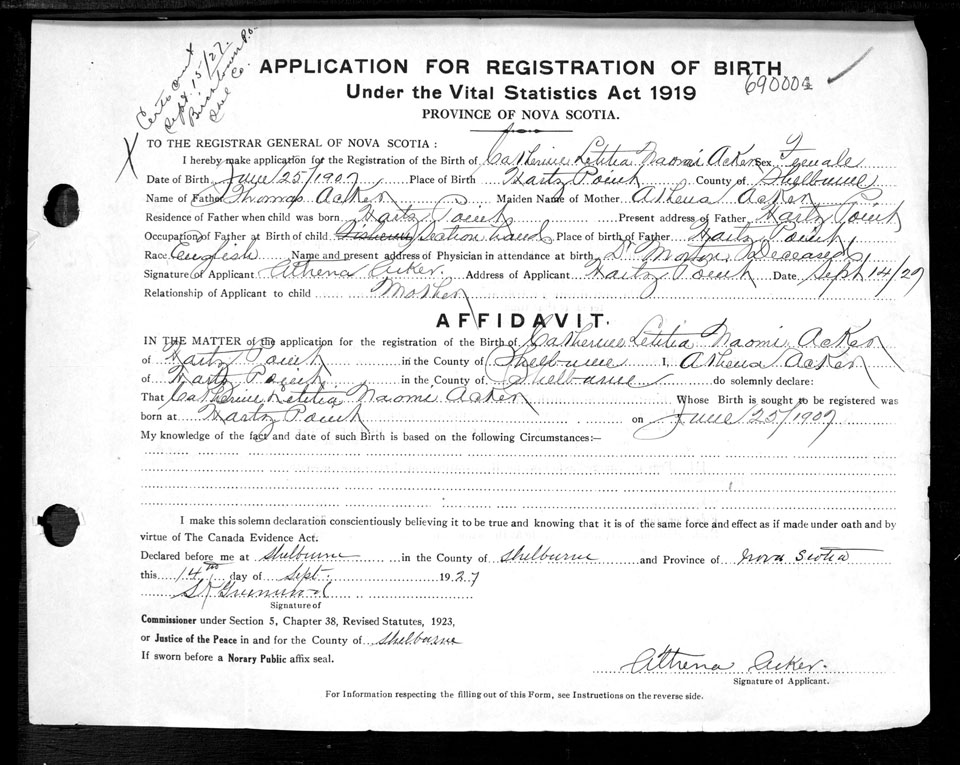 Sept. 15/27.
APPLICATION FOR REGISTRATION OF BIRTH
Under the Vital Statistics Act 1919
690004
PROVINCE OF NOVA SCOTIA.
X
TO THE REGISTRAR GENERAL OF NOVA SCOTIA:
I hereby make application for the Registration of the Birth of Catherine Letitia Naomi Acker Sex Female
Date of Birth June 25/1907 Place of Birth Hartz Point County of Shelburne
Name of Father Thomas Acker Maiden Name of Mother Athena Acker
Residence of Father when child was born Hartz Point Present address of Father Hartz Point
Occupation of Father at Birth of child section hand Place of birth of Father Hartz Point
Race English Name and present address of Physician in attendance at birth Dr Morton Deceased
Signature of Applicant Athena Acker. Address of Applicant Hartz Point Date Sept 14/27
Relationship of Applicant to child Mother
AFFIDAVIT.
IN THE MATTER of the application for the registration of the Birth of Catherine Letitia Naomi Acker
of Hartz Point in the County of Shelburne I, Athena Acker
of Hartz Point in the County of Shelburne do solemnly declare:
That Catherine Letitia Naomi Acker Whose Birth is sought to be registered was
born at Hartz Point on June 25/1907
My knowledge of the fact and date of such Birth is based on the following Circumstances:—
I make this solemn declaration conscientiously believing it to be true and knowing that it is of the same force and effect as if made under oath and by
virtue of The Canada Evidence Act.
Declared before me at Shelburne in the County of Shelburne and Province of Nova Scotia
this 14th day of Sept. 1927
Signature of
Commissioner under Section 5, Chapter 38, Revised Statutes, 1923,
or Justice of the Peace in and for the County of Shelburne
If sworn before a Notary Public affix seal.
Athena Acker.
Signature of Applicant.
For Information respecting the filling out of this Form, see Instructions on the reverse side.